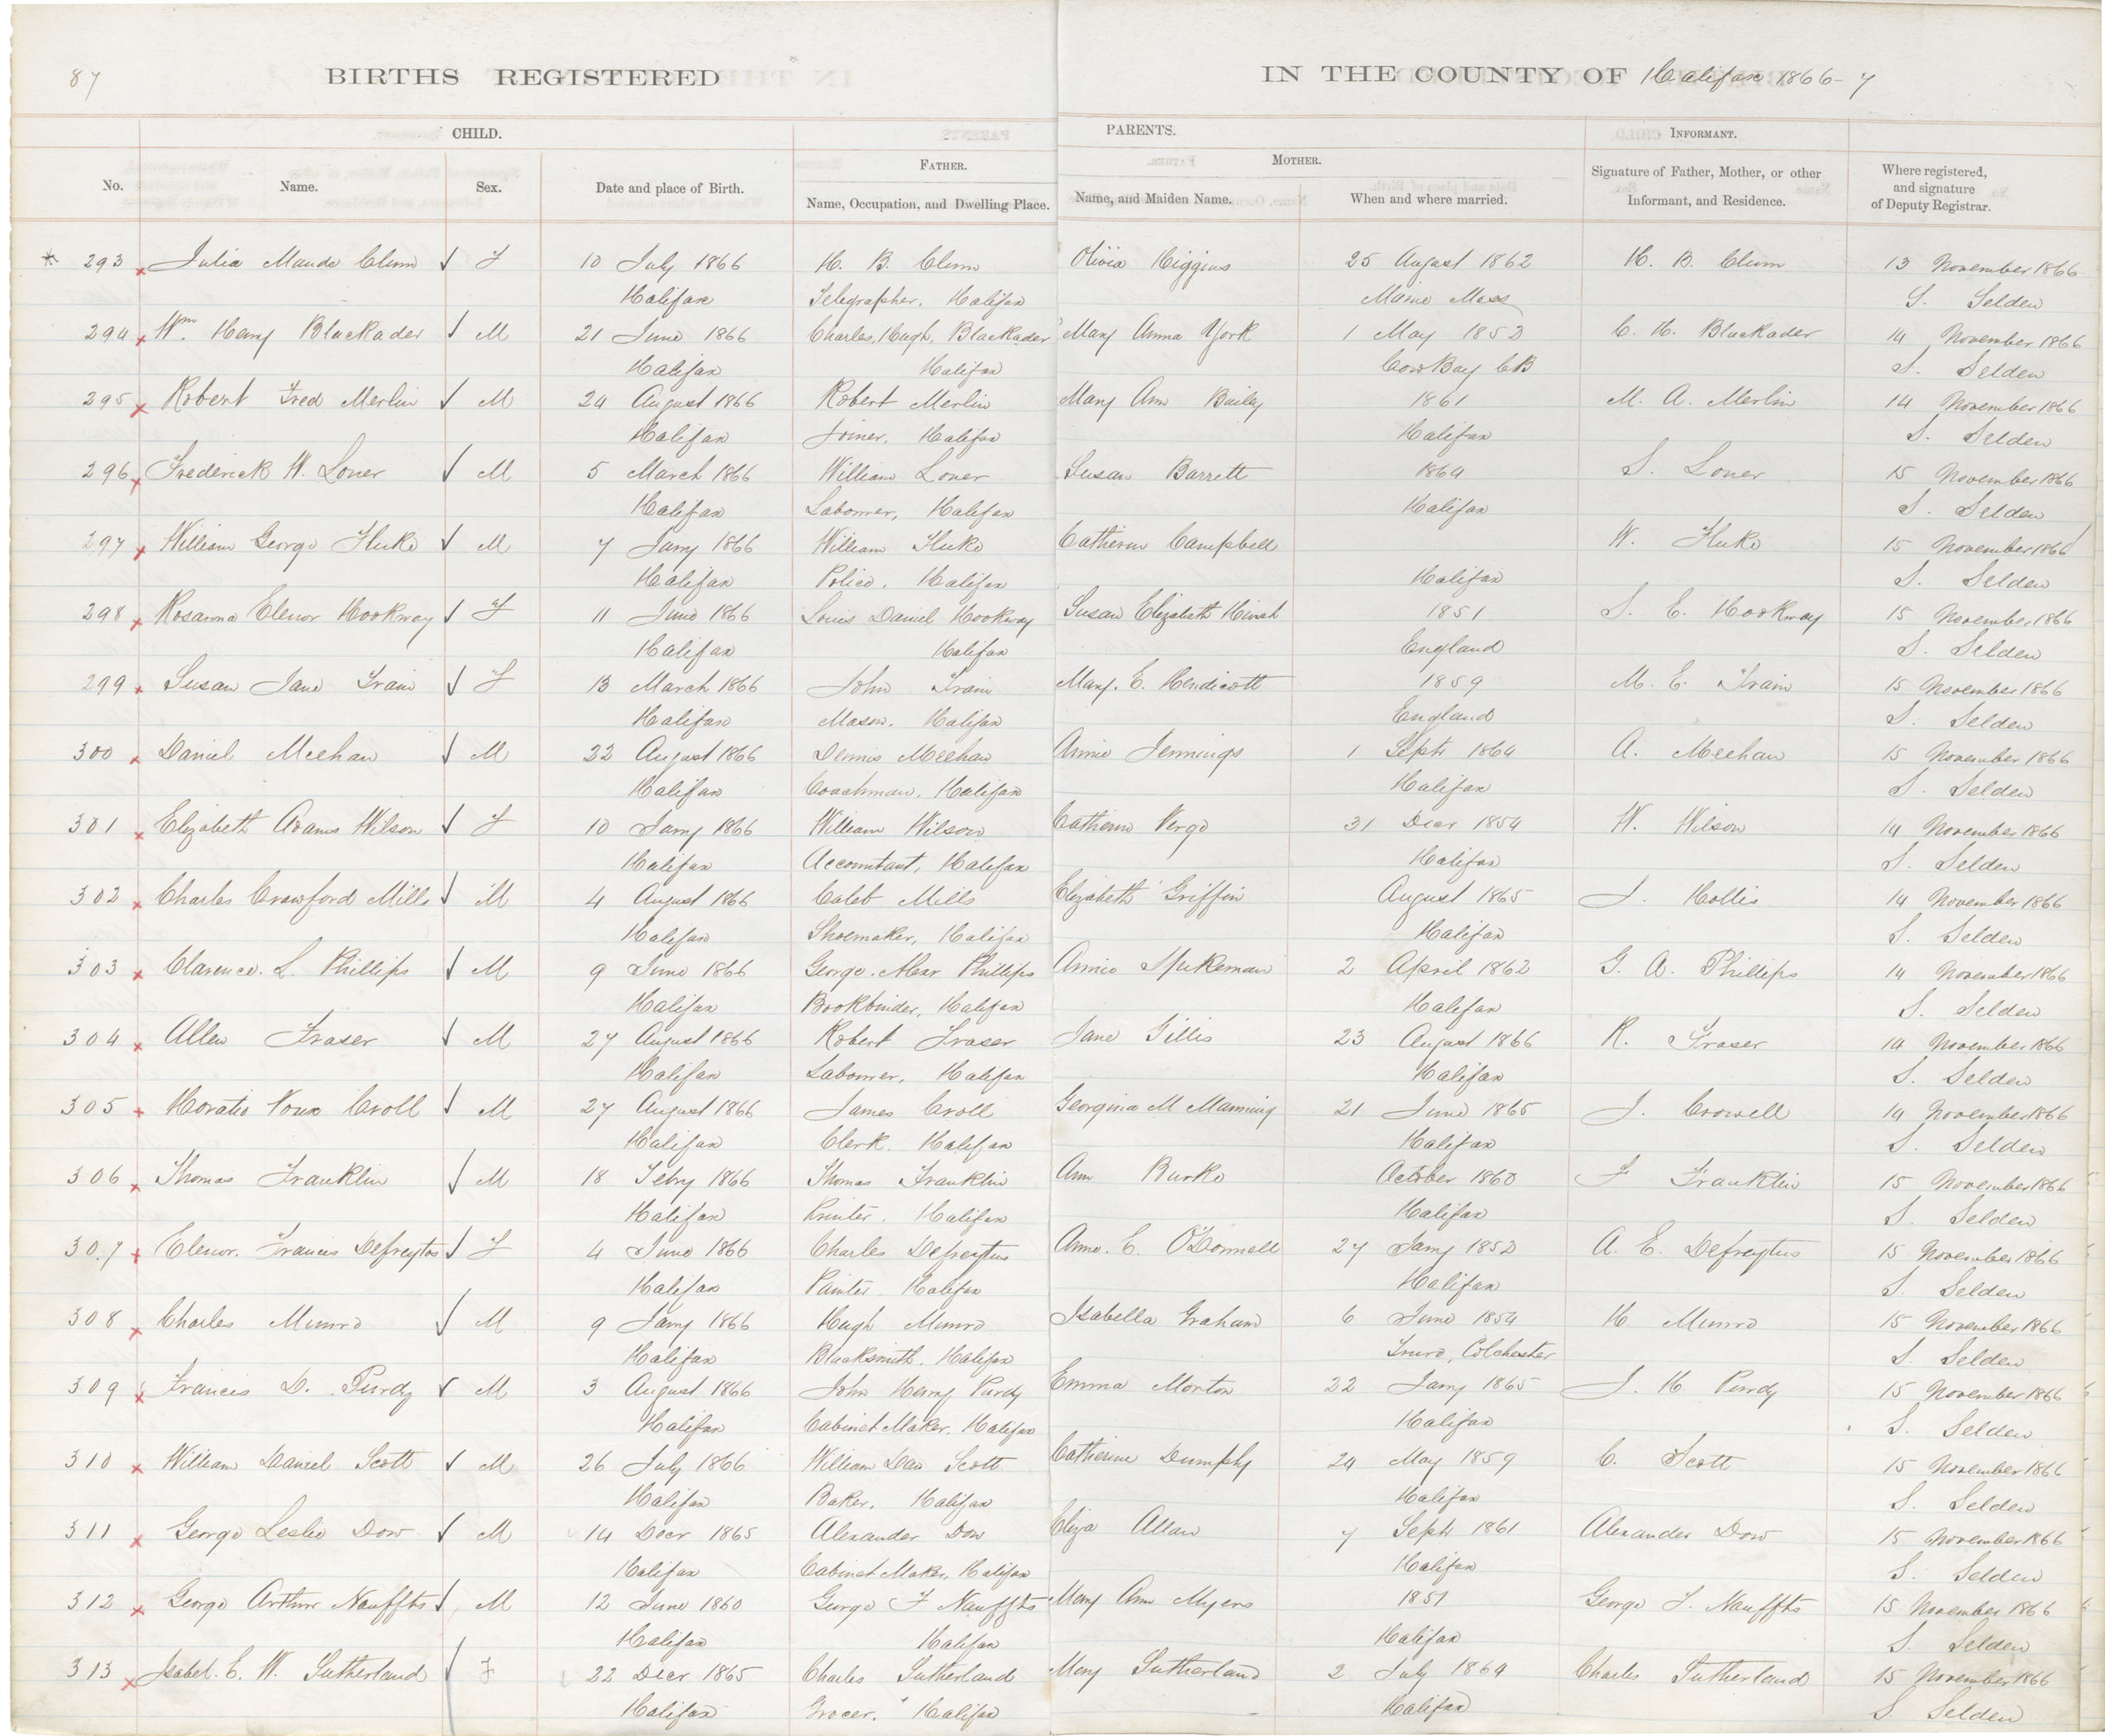 87
BIRTHS REGISTERED IN THE COUNTY OF Halifax 1866-7
CHILD. PARENTS. INFORMANT.
FATHER. MOTHER.
No. Name. Sex. Date and place of Birth. Name, Occupation, and Dwelling Place. Name, and Maiden Name. When and where married. Signature of Father, Mother, or other Informant, and Residence. Where registered, and signature of Deputy Registrar.
* 293 x Julia Maude Clum ✓ F 10 July 1866 H. B. Clum Olivia Higgins 25 August 1862 H. B. Clum 13 November 1866
Halifax Telegrapher, Halifax Maine Mass S. Selden
294 x Wm. Harry Blackader ✓ M 21 June 1866 Charles, Hugh, Blackader Mary Anna York 1 May 1853 C. H. Blackader 14 November 1866
Halifax Halifax Cow Bay CB S. Selden
295 x Robert Fred Merlin ✓ M 24 August 1866 Robert Merlin Mary Ann Bailey 1861 M. A. Merlin 14 November 1866
Halifax Joiner, Halifax Halifax S. Selden
296 x Frederick W. Loner ✓ M 5 March 1866 William Loner Susan Barrett 1864 S. Loner 15 November 1866
Halifax Labourer, Halifax Halifax S. Selden
297 x William George Fluke ✓ M 7 Jany 1866 William Fluke Catherine Campbell W. Fluke 15 November 1866
Halifax Police. Halifax Halifax S. Selden
298 x Rosanna Elenor Hookway ✓ F 11 June 1866 Louis Daniel Hookway Susan Elizabeth 1851 S. E. Hookway 15 November 1866
Halifax Halifax England S. Selden
299 x Susan Jane Train ✓ F 13 March 1866 John Train Mary. E. Hendicott 1859 M. E. Train 15 November 1866
Halifax Mason. Halifax England S. Selden
300 x Daniel Meehan ✓ M 22 August 1866 Dennis Meehan Annie Jennings 1 Sept 1864 A. Meehan 15 November 1866
Halifax Coachman, Halifax Halifax S. Selden
301 x Elizabeth Adams Wilson ✓ F 10 Jany 1866 William Wilson Catherine Vergo 31 Decr 1854 W. Wilson 14 November 1866
Halifax Accountant, Halifax Halifax S. Selden
302 x Charles Crawford Mills ✓ M 4 August 1866 Caleb Mills Elizabeth Griffin August 1865 J. Hollis 14 November 1866
Halifax Shoemaker, Halifax Halifax S. Selden
303 x Clarence. L. Phillips ✓ M 9 June 1866 George. Alexr Phillips Annie Spikeman 2 April 1862 G. A. Phillips 14 November 1866
Halifax Bookbinder, Halifax Halifax S. Selden
304 x Allen Fraser ✓ M 27 August 1866 Robert Fraser Jane Gillis 23 August 1866 R. Fraser 14 November 1866
Halifax Labourer, Halifax Halifax S. Selden
305 x Horatio Croll ✓ M 27 August 1866 James Croll Georgina M Manning 21 June 1865 J. Crowell 14 November 1866
Halifax Clerk. Halifax Halifax S. Selden
306 x Thomas Franklin ✓ M 18 Febry 1866 Thomas Franklin Ann Burke October 1860 F Franklin 15 November 1866
Halifax Printer. Halifax Halifax S. Selden
307 x Elenor. Frances Defreytas ✓ F 4 June 1866 Charles Defreytus Anne. E. O'Donnell 27 Jany 1853 A. E. Defreytus 15 November 1866
Halifax Painter. Halifax Halifax S. Selden
308 x Charles Munro ✓ M 9 Jany 1866 Hugh Munro Isabella Graham 6 June 1854 H. Munro 15 November 1866
Halifax Blacksmith. Halifax Truro, Colchester S. Selden
309 x Francis D. Purdy ✓ M 3 August 1866 John Henry Purdy Emma Morton 22 Jany 1865 J. H. Purdy 15 November 1866
Halifax Cabinet Maker. Halifax Halifax S. Selden
310 x William Daniel Scott ✓ M 26 July 1866 William Dan Scott Catherine Dumphy 24 May 1859 C. Scott 15 November 1866
Halifax Baker. Halifax Halifax S. Selden
311 x George Leslie Dow ✓ M 14 Decr 1865 Alexander Dow Eliza Allan 7 Sept 1861 Alexander Dow 15 November 1866
Halifax Cabinet Maker, Halifax Halifax S. Selden
312 x George Arthur Nauffts ✓ M 12 June 1860 George F Nauffts Mary Ann Myers 1857 George F. Nauffts 15 November 1866
Halifax Halifax Halifax S. Selden
313 x Isabel. E. W. Sutherland ✓ F 22 Decr 1865 Charles Sutherland Mary Sutherland 2 July 1864 Charles Sutherland 15 November 1866
Halifax Grocer. Halifax Halifax S. Selden